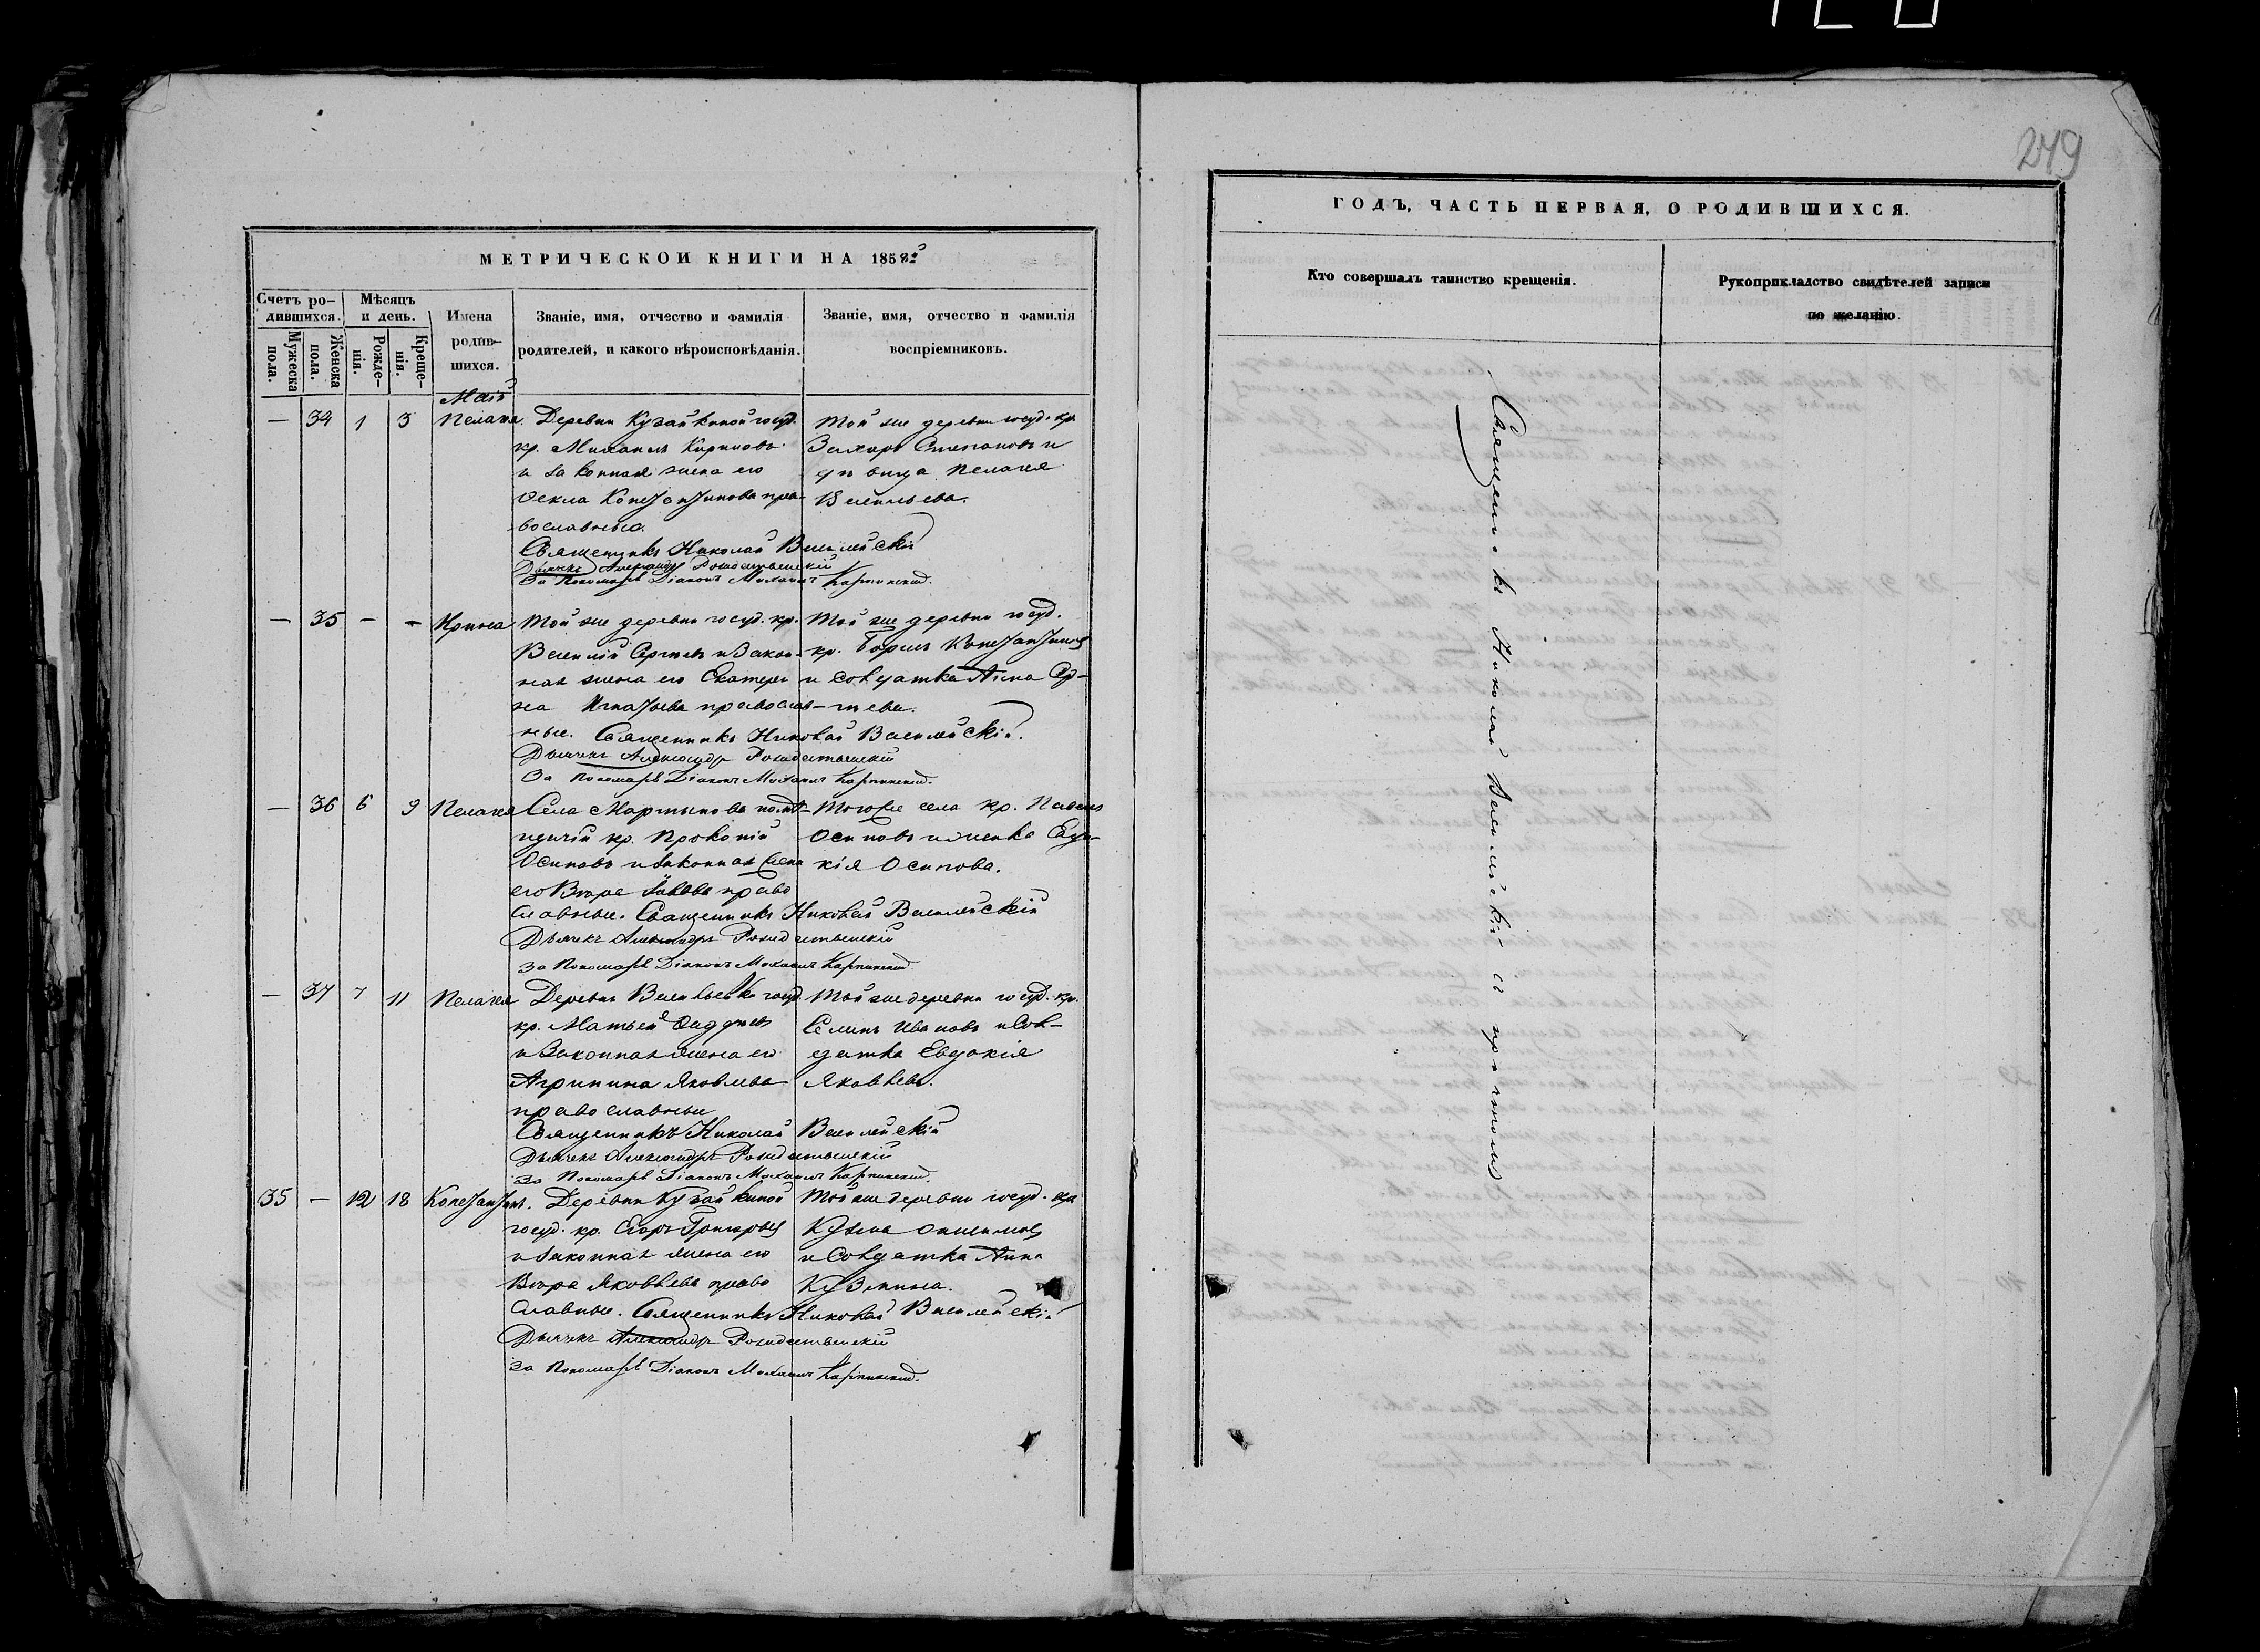 249
МЕТРИЧЕСКОЙ КНИГИ НА 1858й
Счетъ родившихся.
Мужеска пола.
Женска пола.
Мѣсяцъ и день.
Рожденія.
Крещенія.
Имена родившихся.
Званіе, имя, отчество и фамилія
родителей, и какого вѣроисповѣданія.
Званіе, имя, отчество и фамилія
воспріемниковъ.
Май
— 34 1 3 Пелагея. Деревни Кузайкиной госуд.
кр. Михаилъ
и законная жена его
Ѳекла Константинова пра-
вославные.
Той же деревни госуд. кр.
Захаръ Степановъ и
дѣвица Пелагея
Васильева.
Священникъ Николай
Дьячекъ Александръ Рождественскій
За Пономаря Діаконъ Михаилъ Карпинскій.
— 35 – – Ирина Той же деревни госуд. кр.
Василій Сергѣевъ и закон-
ная жена его Екатери
на Игнатьева православ-
ные.
Той же деревни госуд.
кр. Борисъ Константиновъ
и солдатка Анна Сер-
гѣева.
Священникъ Николай
Дьячекъ Александръ Рождественскій
За Пономаря Діаконъ Михаилъ Карпинскій.
— 36 6 9 Пелагея Села Мартынова помѣ-
щичій кр. Прокопій
Осиповъ и законная жена
его Вѣра право
славные.
Тогоже села кр. Павелъ
Осиповъ и женка Евдо-
кія Осипова.
Священникъ Николай
Дьячекъ Александръ Рождественскій
За Пономаря Діаконъ Михаилъ Карпинскій.
— 37 7 11 Пелагея Деревни госуд.
кр. Матвей
и законная жена его
Агрипина Яковлева
православные
Той же деревни госуд. кр.
Ивановъ и сол-
датка Евдокія
Яковлева.
Священникъ Николай
Дьячекъ Александръ Рождественскій
За Пономаря Діаконъ Михаилъ Карпинскій.
35 — 12 18 Константинъ. Деревни Кузайкиной
госуд. кр. Егоръ Григорьевъ
и законная жена его
Вѣра Яковлева право
славные.
Той же деревни госуд. кр.
Кузма
и солдатка Анна
Кузмина.
Священникъ Николай
Дьячекъ Александръ Рождественскій
За Пономаря Діаконъ Михаилъ Карпинскій.
ГОДЪ, ЧАСТЬ ПЕРВАЯ, О РОДИВШИХСЯ.
Кто совершалъ таинство крещенія.
Рукоприкладство свидѣтелей записи
по желанію.
Священникъ Николай съ причтомъ